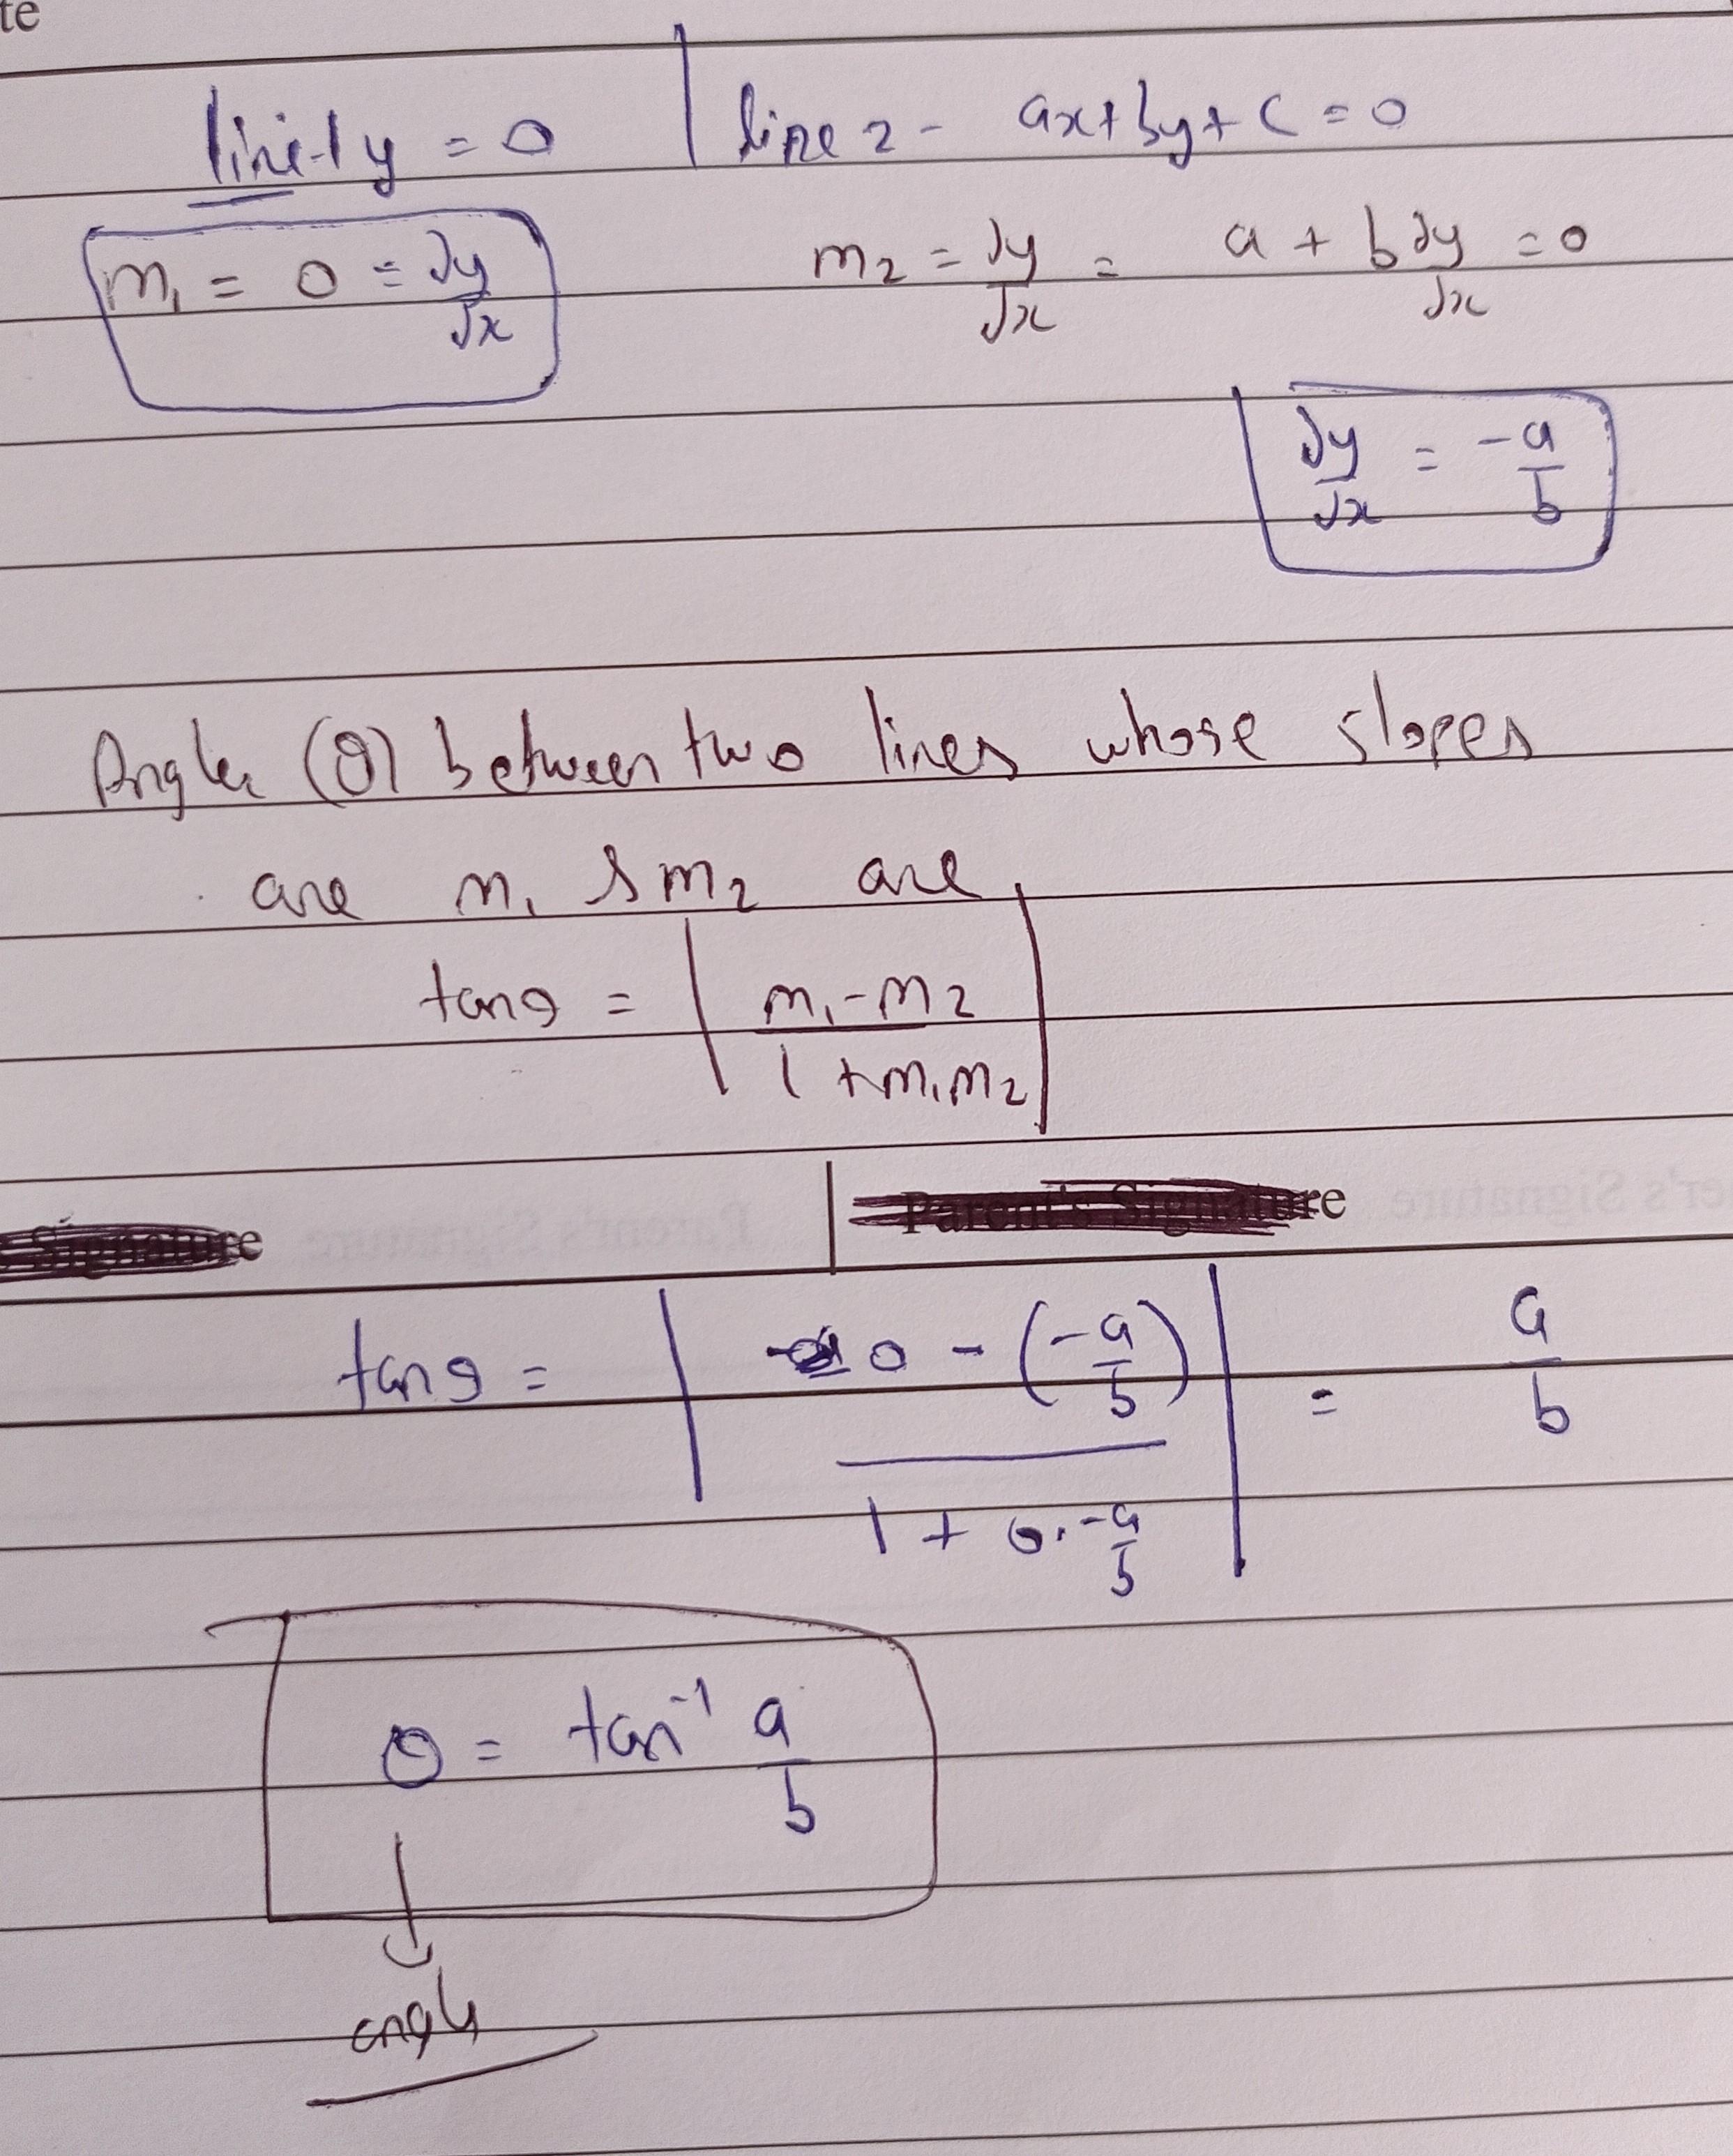 te
line-1 y = 0 | line 2 - ax+by+c = 0
m₁ = 0 = dy/dx
m₂ = dy/dx = a + b dy/dx = 0
dy/dx = -a/b
Angle (θ) between two lines whose slopes
are m₁ & m₂ are
tanθ = | (m₁-m₂)/(1+m₁m₂) |
Signature
Parent's Signature
tanθ = | (0 - (-a/b))/(1 + 0.-a/b) | = a/b
θ = tan⁻¹ a/b
↓
angle